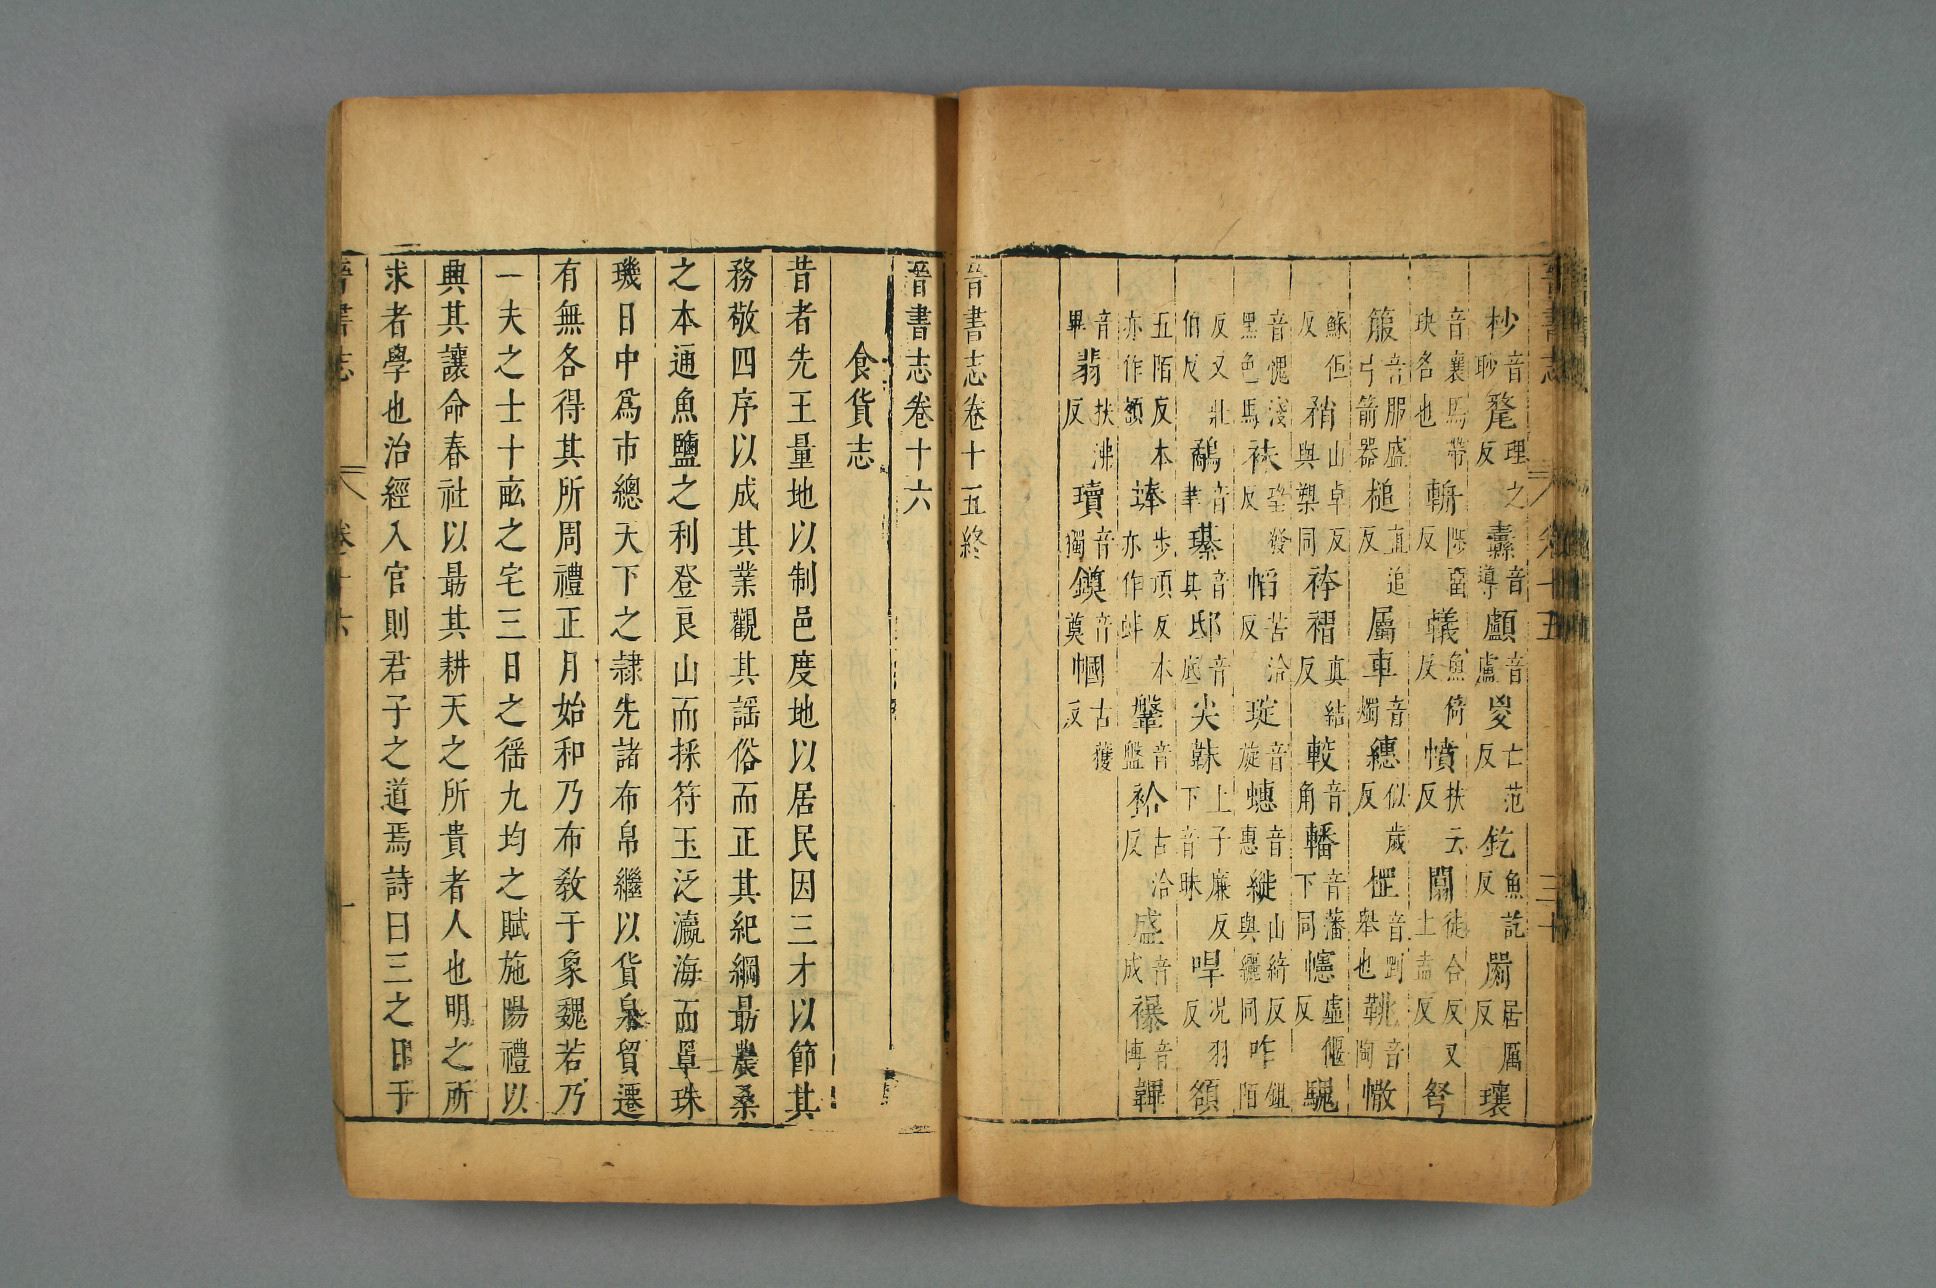 晉書志 卷十五 三十
杪音眇氂理之反纛音導顱音盧㚇亡范反釳魚訖反罽居厲反瓖
音襄馬帶玦名也斬反轙魚倚反幩扶云反闟徒合反又土盍反弩
箙音服盛弓箭器槌直追反屬車音燭繐似歲反㭏音剛舉也鞉音陶幰
蘇佢反矟山卓反與槊同袴褶真結反較音角轓音藩下同幰虛偃反騩
音愧淺黑色馬袜反帢苦洽反琁音旋蟪音惠縰山綺反與纚同咋鉏陌
反又壯伯反鷸音聿璂音其邸音底尖韎上子廉反下音昧冔况羽反額
五陌反本亦作頟琫步項反本亦作蚌鞶音盤袷古洽反盛音成襮音博韠
音畢翡扶沸反瓄音獨鎮音奠幗古獲反
晉書志卷十五終
晉書志卷十六
食貨志
昔者先王量地以制邑度地以居民因三才以節其
務敬四序以成其業觀其謡俗而正其紀綱最農桑
之本通魚鹽之利登良山而採符玉泛瀛海而罩珠
璣日中爲市總天下之隷先諸布帛繼以貨泉貿遷
有無各得其所周禮正月始和乃布敎于象魏若乃
一夫之士十畝之宅三日之徭九均之賦施陽禮以
興其讓命春社以最其耕天之所貴者人也明之所
求者學也治經入官則君子之道焉詩曰三之日于
晉書志 卷十六 一